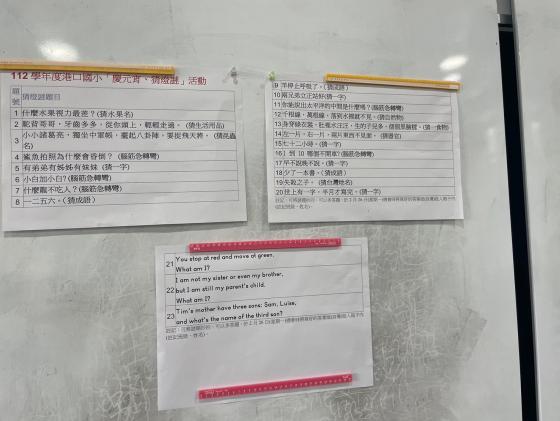 112 學年度港口國小「慶元宵、猜燈謎」活動
題號 猜燈謎題目
1 什麼水果視力最差？(猜水果名)
2 駝背哥哥，牙齒多多，從你頭上，輕輕走過。(猜生活用品)
3 小小諸葛亮，獨坐中軍帳，擺起八卦陣，要捉飛天將。(猜昆蟲名)
4 鯊魚拍照為什麼會昏倒？(腦筋急轉彎)
5 有弟弟有姊姊有妹妹 (猜一字)
6 小白加小白？(腦筋急轉彎)
7 什麼龍不吃人？(腦筋急轉彎)
8 一二五六。(猜成語)
9 羊停止呼吸了。(猜成語)
10 兩兄弟立正站好(猜一字)
11 你能說出太平洋的中間是什麼嗎？(腦筋急轉彎)
12 千根線，萬根線，落到水裡就不見。(猜自然物)
13 身穿綠衣裳，肚裡水汪汪，生的子兒多，個個黑臉膛。(猜一食物)
14 左一片，右一片，兩片東西不見面。(猜器官)
15 七十二小時。(猜一字)
16 1 到 10 哪個不開車？(腦筋急轉彎)
17 早不說晚不說。(猜一字)
18 少了一本書。(猜成語)
19 失散之子。(猜台灣地名)
20 技上有一字，半月才寫完。(猜一字)
21 You stop at red and move at green.
What am I?
22 I am not my sister or even my brother,
but I am still my parent's child.
What am I?
23 Tim's mother have three sons: Sam, Luise,
and what's the name of the third son?